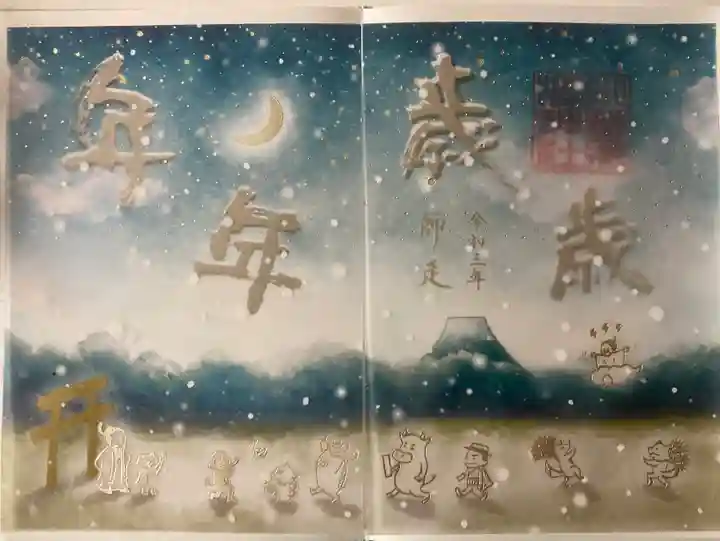 歳
歳
令和三年
師走
年
年